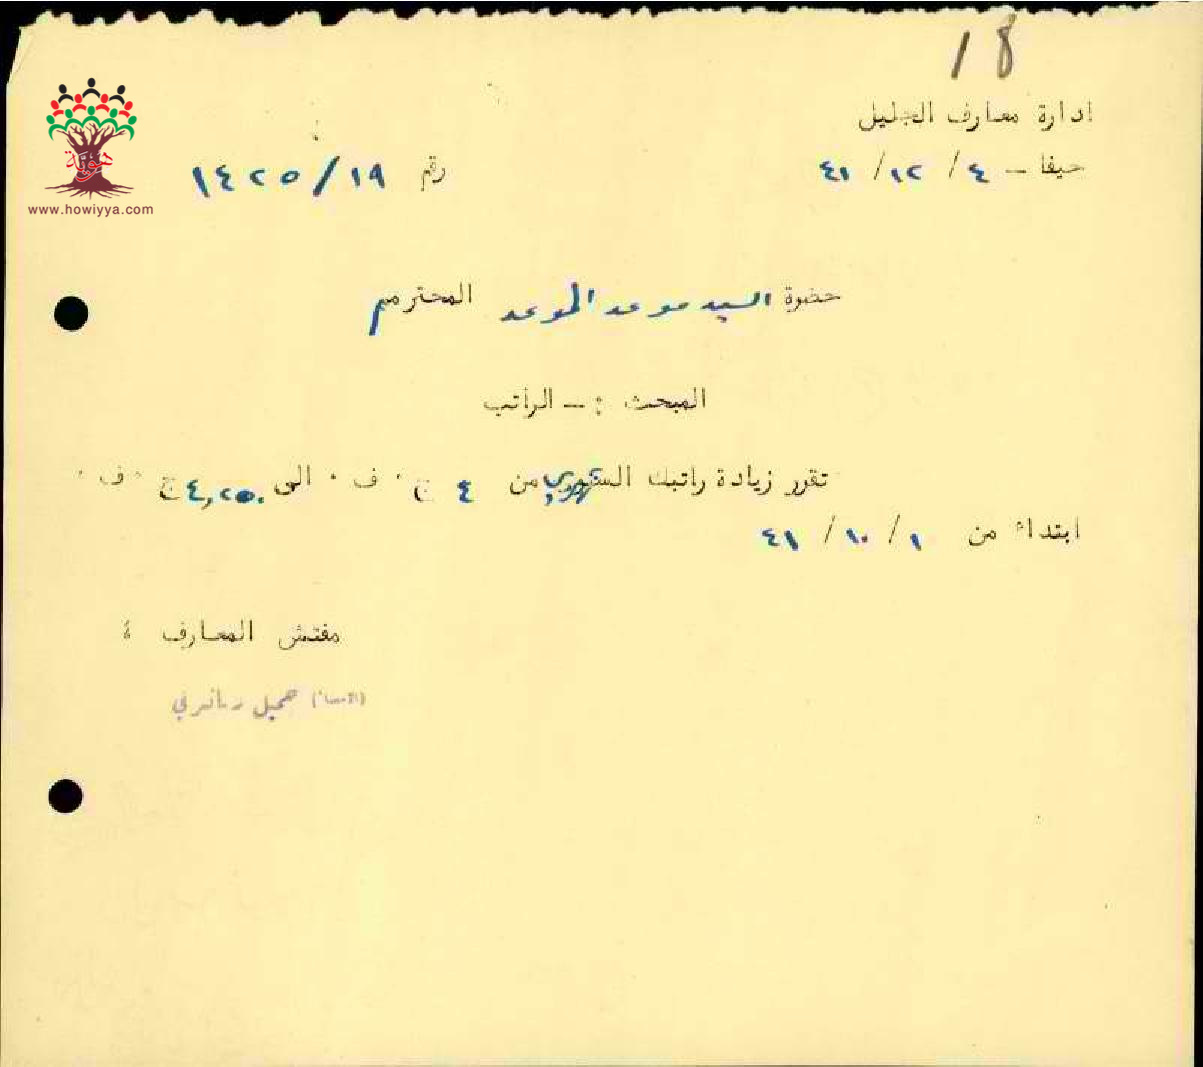 18
ادارة معارف الجليل
حيفا - ٤ / ١٢ / ٤١ رقم ١٤٢٥/١٩
هوية
www.howiyya.com
حضرة السيد موعد الموعد المحترم
المبحث :- الراتب
تقرر زيادة راتبك الشهري من ٤ ج . ف . الى ٤,٢٥٠ ج . ف .
ابتداء من ١ / ١٠ / ٤١
مفتش المعارف
(الامضاء) جميل